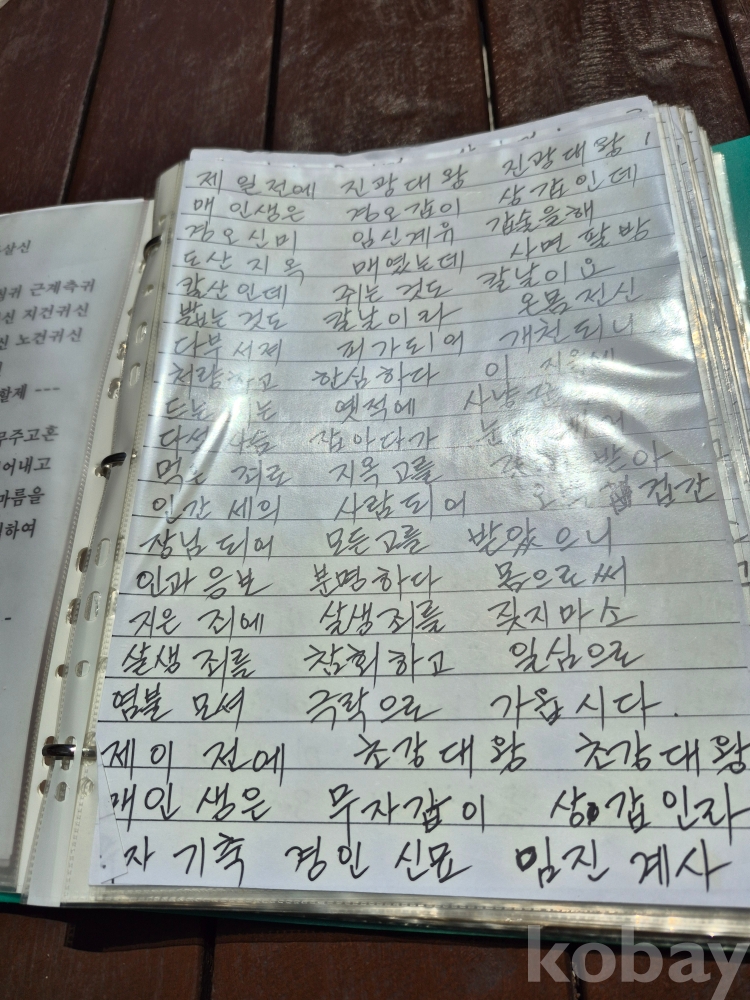 살신
귀 근계측귀
신 지건귀신
신 노건귀신
할제 ---
무주고혼
어내고
마름을
하여
제 일전에 진광대왕 진광대왕
매 인생은 경오갑이 상갑인데
경오신미 임신계유 갑술을해
도산지옥 매였는데 사면 팔방
칼산인데 쥐는 것도 칼날이요
뽑는 것도 칼날이라 온몸전신
다부서져 피가되어 개천되니
처량하고 한심하다 이
드는 옛적에 사냥
다섯 잡아다가
먹는 죄로 지옥고를 받아
인간 세의 사람되어 겁간
장님되어 모든고를 받았으니
인과응보 분명하다 몸으로써
지은 죄에 살생죄를 짖지마소
살생죄를 참회하고 일심으로
염불 모셔 극락으로 가읍시다.
제이 전에 초강대왕 초강대왕
매인생은 무자갑이 상갑인라
자 기축 경인 신묘 임진 계사
kobay